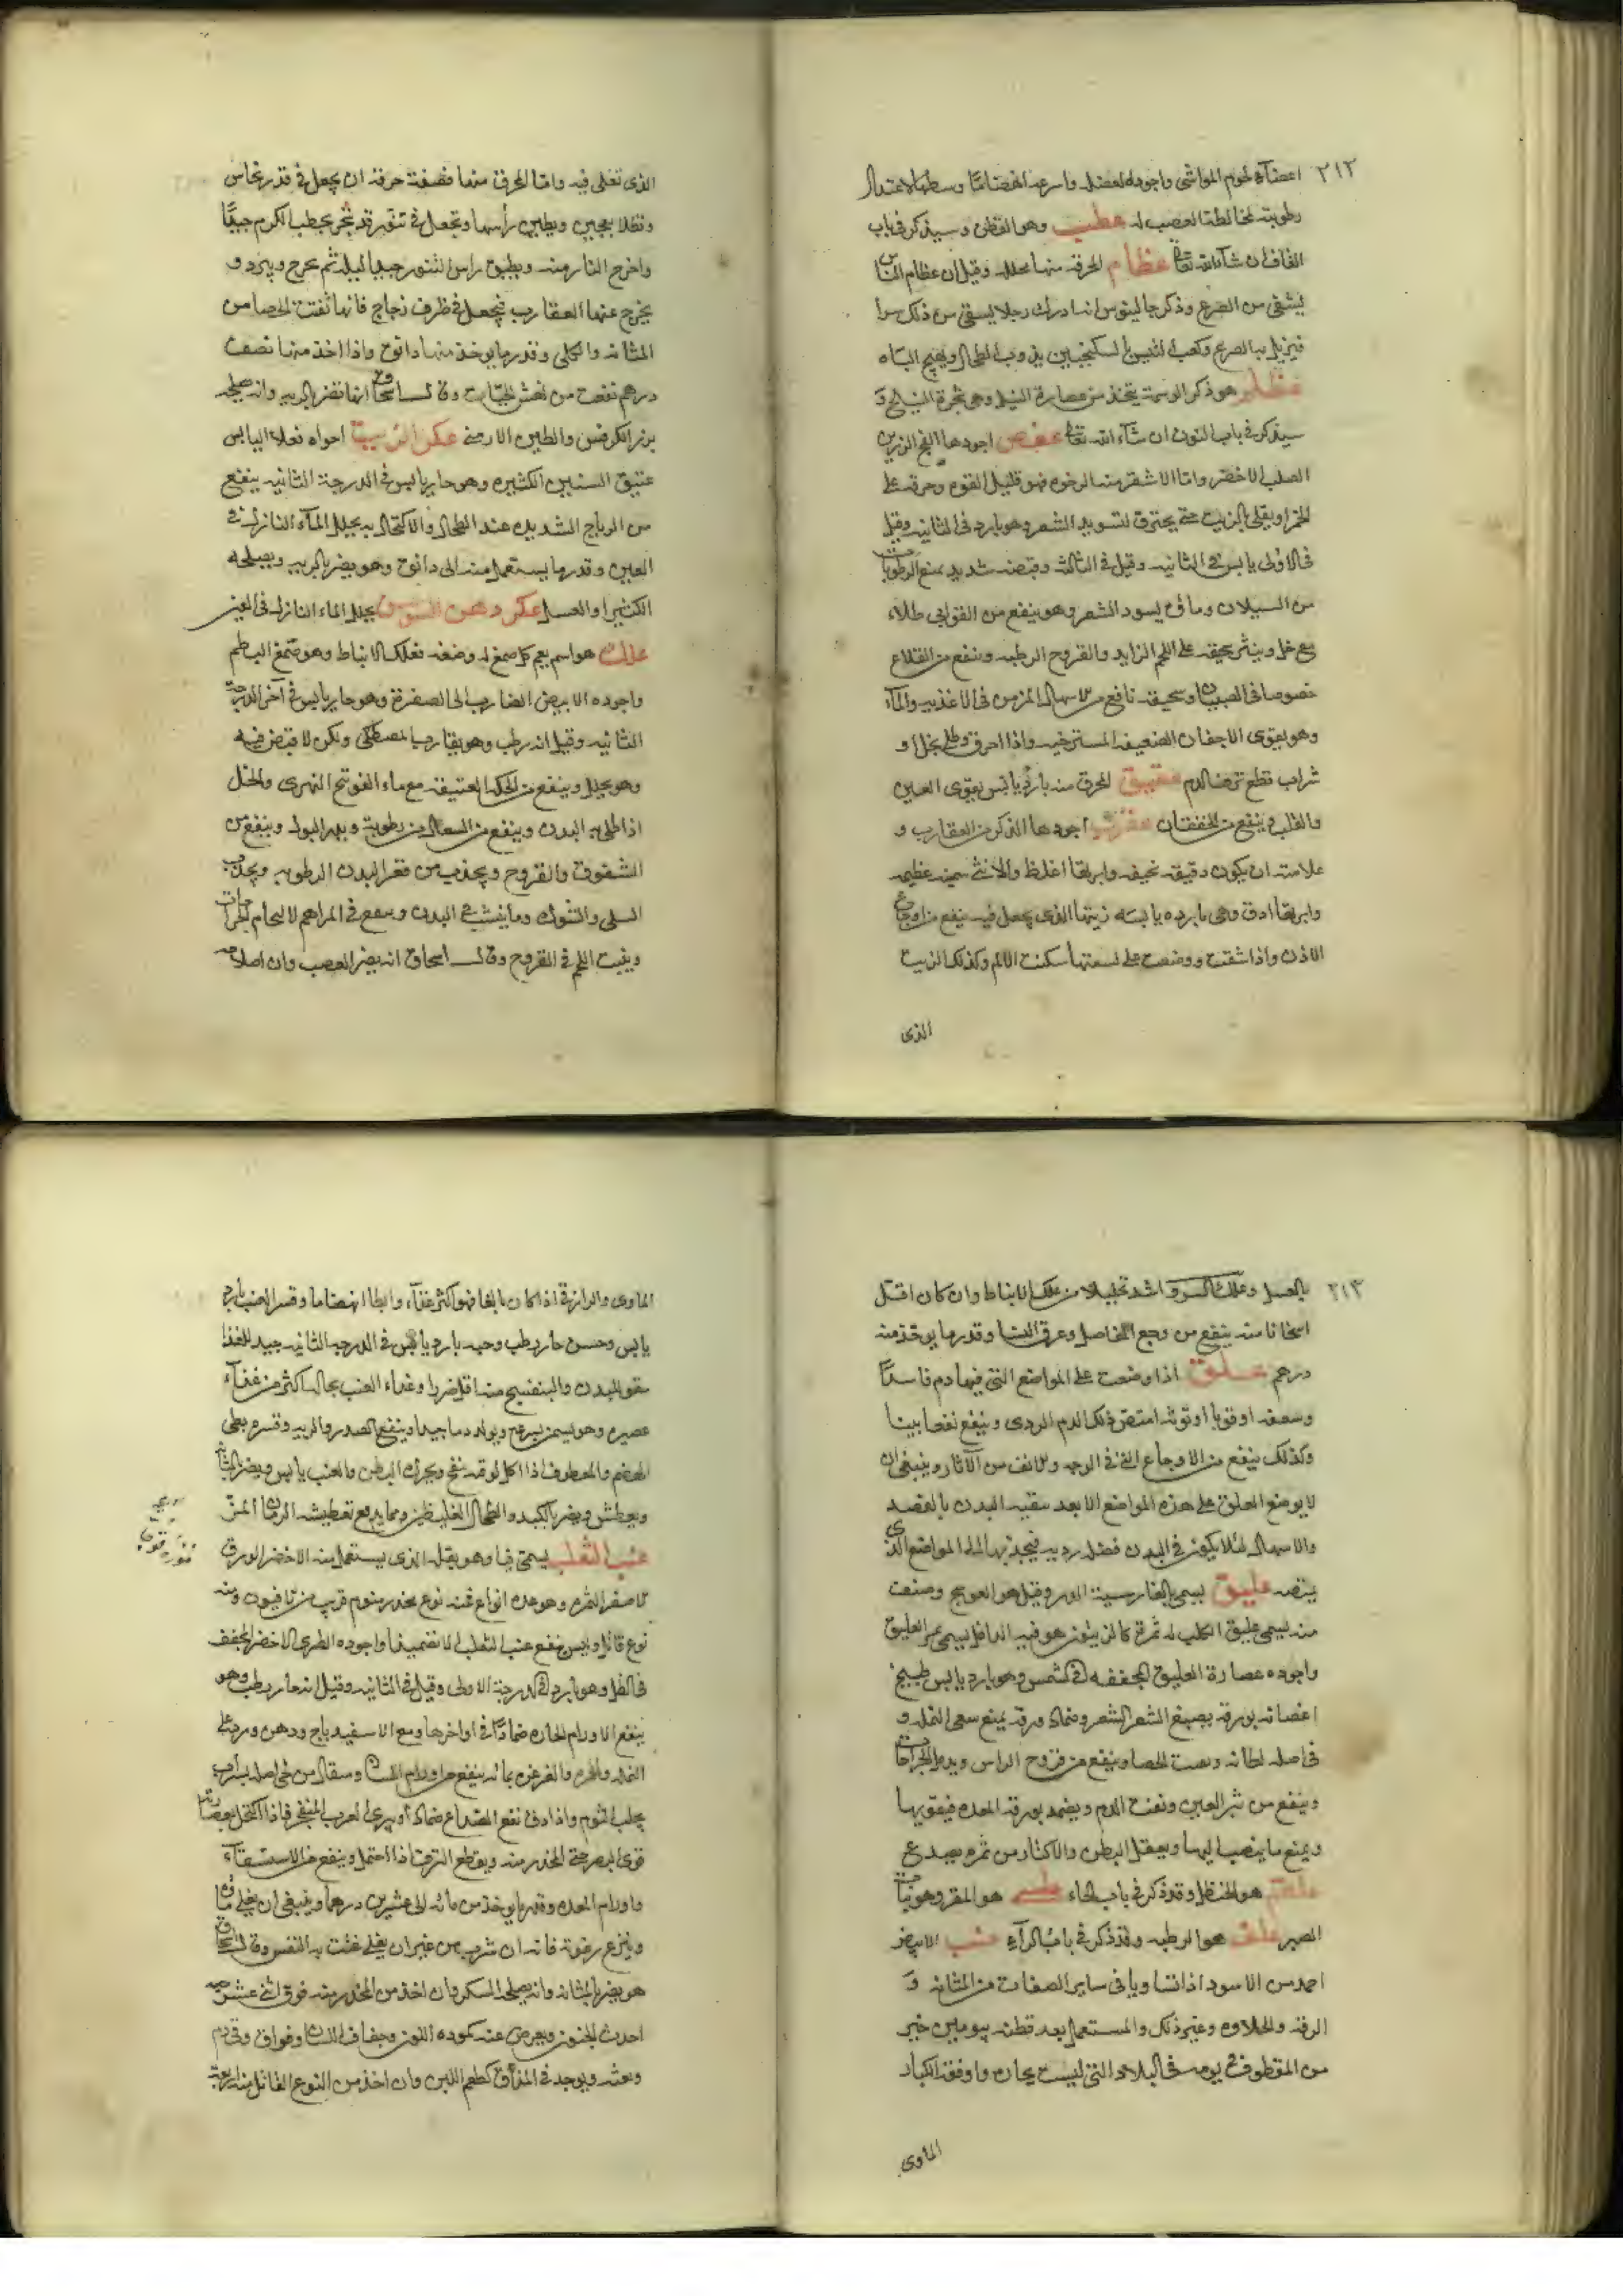 ٢١٢
اعضآء لحوم المواشى واجوده العضل واسرعه انهضامًا وسطها لاعتدال
رطوبته لمخالطة العصب له عطب وهو القطن وسيذكر فى باب
القاف ان شآء الله تعالى عظام المحرقة منها محلله وقيل ان عظام الناس
يشفى من الصرع وذكر جالينوس انه ادرك رجلا يسقى من ذلك سرا
فيزيل به الصرع وكعب التيس بالسكنجبين يذوب الطحال ويهيج الباه
عظلم هو ذكر الوسمة يتخذ من عصارة النيل وهى شجرة النيلج و
سيذكر فى باب النون ان شآء الله تعالى عفص اجودها الفج الرزين
الصلب الاخضر واما الاشقر منه الرخوه فهو قليل القوه وحرقه على
الجمر او يقلى بالزيت حتى يحترق لتسويد الشعر وهو بارد فى الثانيه وقيل
فى الاولى يابس فى الثانيه وقيل فى الثالثه وقبضه شديد يمنع الرطوبات
من السيلان وماؤه يسود الشعر وهو ينفع من القوابى طلاء
مع خل وينثر سحيقه على اللحم الزايد والقروح الرطبه وينفع من القلاع
خصوصا فى الصبيان وسحيقه نافع من الاسهال المزمن فى الاغذيه والمآء
وهو يقوى الاجفان الضعيفه المسترخيه واذا احرق وطفى بخل او
شراب قطع نزف الدم عقيق المحرق منه بارد يابس يقوى العين
والقلب وينفع من الخفقان عقرب اجودها الذكر من العقارب و
علامته ان يكون دقيقه نحيفه وابرتها اغلظ والانثى سمينه عظيمه
وابرتها ادق وهى بارده يابسه زيتها الذى يجعل فيه ينفع من اوجاع
الاذن واذا شقت ووضعت على لسعتها سكنت الالم وكذلك الزيت
الذى
الذى تغلى فيه واما المحرق منها فصفة حرقه ان يجعل فى قدر نحاس
وتطلا بعجين ويطين رأسها وتجعل فى تنور قد سجر بحطب الكرم جيدًا
واخرج النار منه ويطبق راس التنور جيدا ليله ثم يخرج ويبرد و
يخرج عنها العقارب فيجعل فى ظرف زجاج فانها تفتت الحصا من
المثانه والكلى وقدر ما يوخذ منها دانق واذا اخذ منها نصف
درهم نفعت من نهش الحيات وقال اسحاق انها تضر بالريه وانه يصلحه
بزر الكرفس والطين الارمنى عكر الزيت اجواه فعلا اليابس
عتيق السنين الكثيره وهو حار يابس فى الدرجة الثانيه ينفع
من الرياح الشديده عند الطحال والاكتحال به يحلل المآء النازل فى
العين وقدر ما يستعمل منه الى دانق وهو يضر بالريه ويصلحه
الكثيرا والعسل عكر دهن السوسن يحلل الماء النازل فى العين
علك هو اسم يعم كل صمغ له وضغه فعلك الانباط وهو صمغ البطم
واجوده الابيض الضارب الى الصفرة وهو حار يابس فى آخر الدرجة
الثانيه وقيل انه رطب وهو يقارب المصطكى ولكن لا قبض فيه
وهو يحلل وينفع من الحكه العتيقه مع ماء الفوتنج النهرى والخل
اذا طلى به البدن وينفع من السعال من رطوبة ويدر البول وينفع من
الشقوق والقروح ويجذب من قعر البدن الرطوبه ويجذب
السلى والشوك وما ينشب فى البدن وينفع فى المراهم لالتحام الجراحات
وينبت اللحم فى القروح وقال اسحاق انه يضر العصب وان اصلاحه
٢١٣
بالعسل وعلك السرو اشد تحليلا من علك الانباط وان كان اقل
اسخانا منه ينفع من وجع المفاصل وعرق النسا وقدر ما يوخذ منه
درهم علق اذا وضعت على المواضع التى فيها دم فاسدًا
وسعفه او قوبا او توثه امتص ذلك الدم الردى وينفع نفعا بينا
وكذلك ينفع من الاوجاع التى فى الوجه والانف من الآثار وينبغى ان
لا يوضع العلق على هذه المواضع الا بعد تنقيه البدن بالفصد
والاسهال لئلا يكون فى البدن فضل رديه فيجذبها الى المواضع الذى
يمتصه عليق يسمى بالفارسية الدر وقيل هو العوسج وصنف
منه يسمى عليق الكلب له ثمرة كالزيتون هو فيه الداخل يسمى ثمر العليق
واجوده عصارة العليق المجففه فى الشمس وهو بارد يابس طبيخ
اغصانه بورقه يصبغ الشعر الشعر وضماد ورقه يمنع سعى النمله و
فى اصله لطافه وتفتت الحصا وينفع من قروح الراس ويدمل الجراحات
وينفع من نثر العين ونفث الدم ويضمد بورقه المعده فيقويها
ويمنع ما ينصب اليها ويعقل البطن والاكثار من ثمره يصدع
علقم هو الحنظل وقد ذكر فى باب الحاء علس هو المقر وهو نبات
الصبر علف هو الرطبه وقد ذكر فى باب الرآء عنب الابيض
احمد من الاسود اذا تساويا فى ساير الصفات من المتانه و
الرقه والحلاوه وغير ذلك والمستعمل بعد قطفه بيومين خير
من المقطوف فى يومه فى البلاد التى ليست بحاره واوفقه الكبار
الماوى
الماوى والرازقى اذا كان بالغا فهو اكثر غذآء وابطا انهضاما وقشر العنب بارد
يابس وحشوه حار رطب وحبه بارد يابس فى الدرجه الثانيه جيد للغذا
مقو للبدن والبنفسج منه اقل ضررا وغذاء العنب بحاله اكثر من غذآء
عصيره وهو يسمن بسرعه ويولد دما جيدا وينفع الصدر والريه وقشره بطى
الهضم والمقطوف اذا اكل لوقته نفخ وحرك البطن والعنب يابس ويضر بالمثانه
ويعطش ويضر بالكبد والطحال الغليظين ومما يدفع تعطيشه الرمان المز
عنب الثعلب يسمى فنا وهو بقله الذى يستعمل منه الاخضر الورق
الاصفر الثمره وهو عده انواع فمنه نوع مخدر منوم قريب من الافيون ومنه
نوع قاتل وليس ينفع عنب الثعلب الا تضميدها واجوده الطرى الاخضر المجفف
فى الظل وهو بارد فى الدرجة الاولى وقيل فى الثانيه وقيل انه حار رطب وهو
ينفع الاورام الحاره ضمادًا فى اواخرها ومع الاسفيداج ودهن ورد على
النمله والحمره والغرغره بمائه ينفع من اورام اللسان ومثقال من لحى اصله بشراب
يجلب النوم واذا دق نفع الصداع ضمادًا ويبرئ الغرب المنفجر فاذا اكتحل بعصارته
قوى البصر حتى المخدر منه ويقطع النزف اذا احتمل وينفع من الاستسقآء
واورام المعده وقدر ما يوخذ من مائه الى عشرين درهما وينبغى ان يغلى ماؤه
وينزع رغوته فانه ان شرب من غير ان يغلى غثت به النفس وقال اسحاق
هو يضر بالمثانه وانه يصلحه السكر وان اخذ من المخدر منه فوق اثنى عشر حبه
احدث الجنون ويعرض عنه كمودة اللون وجفاف اللسان وفواق وقى دم
وغشى ويوجد فى المذاق كطعم اللبن وان اخذ من النوع القاتل منه اربعة